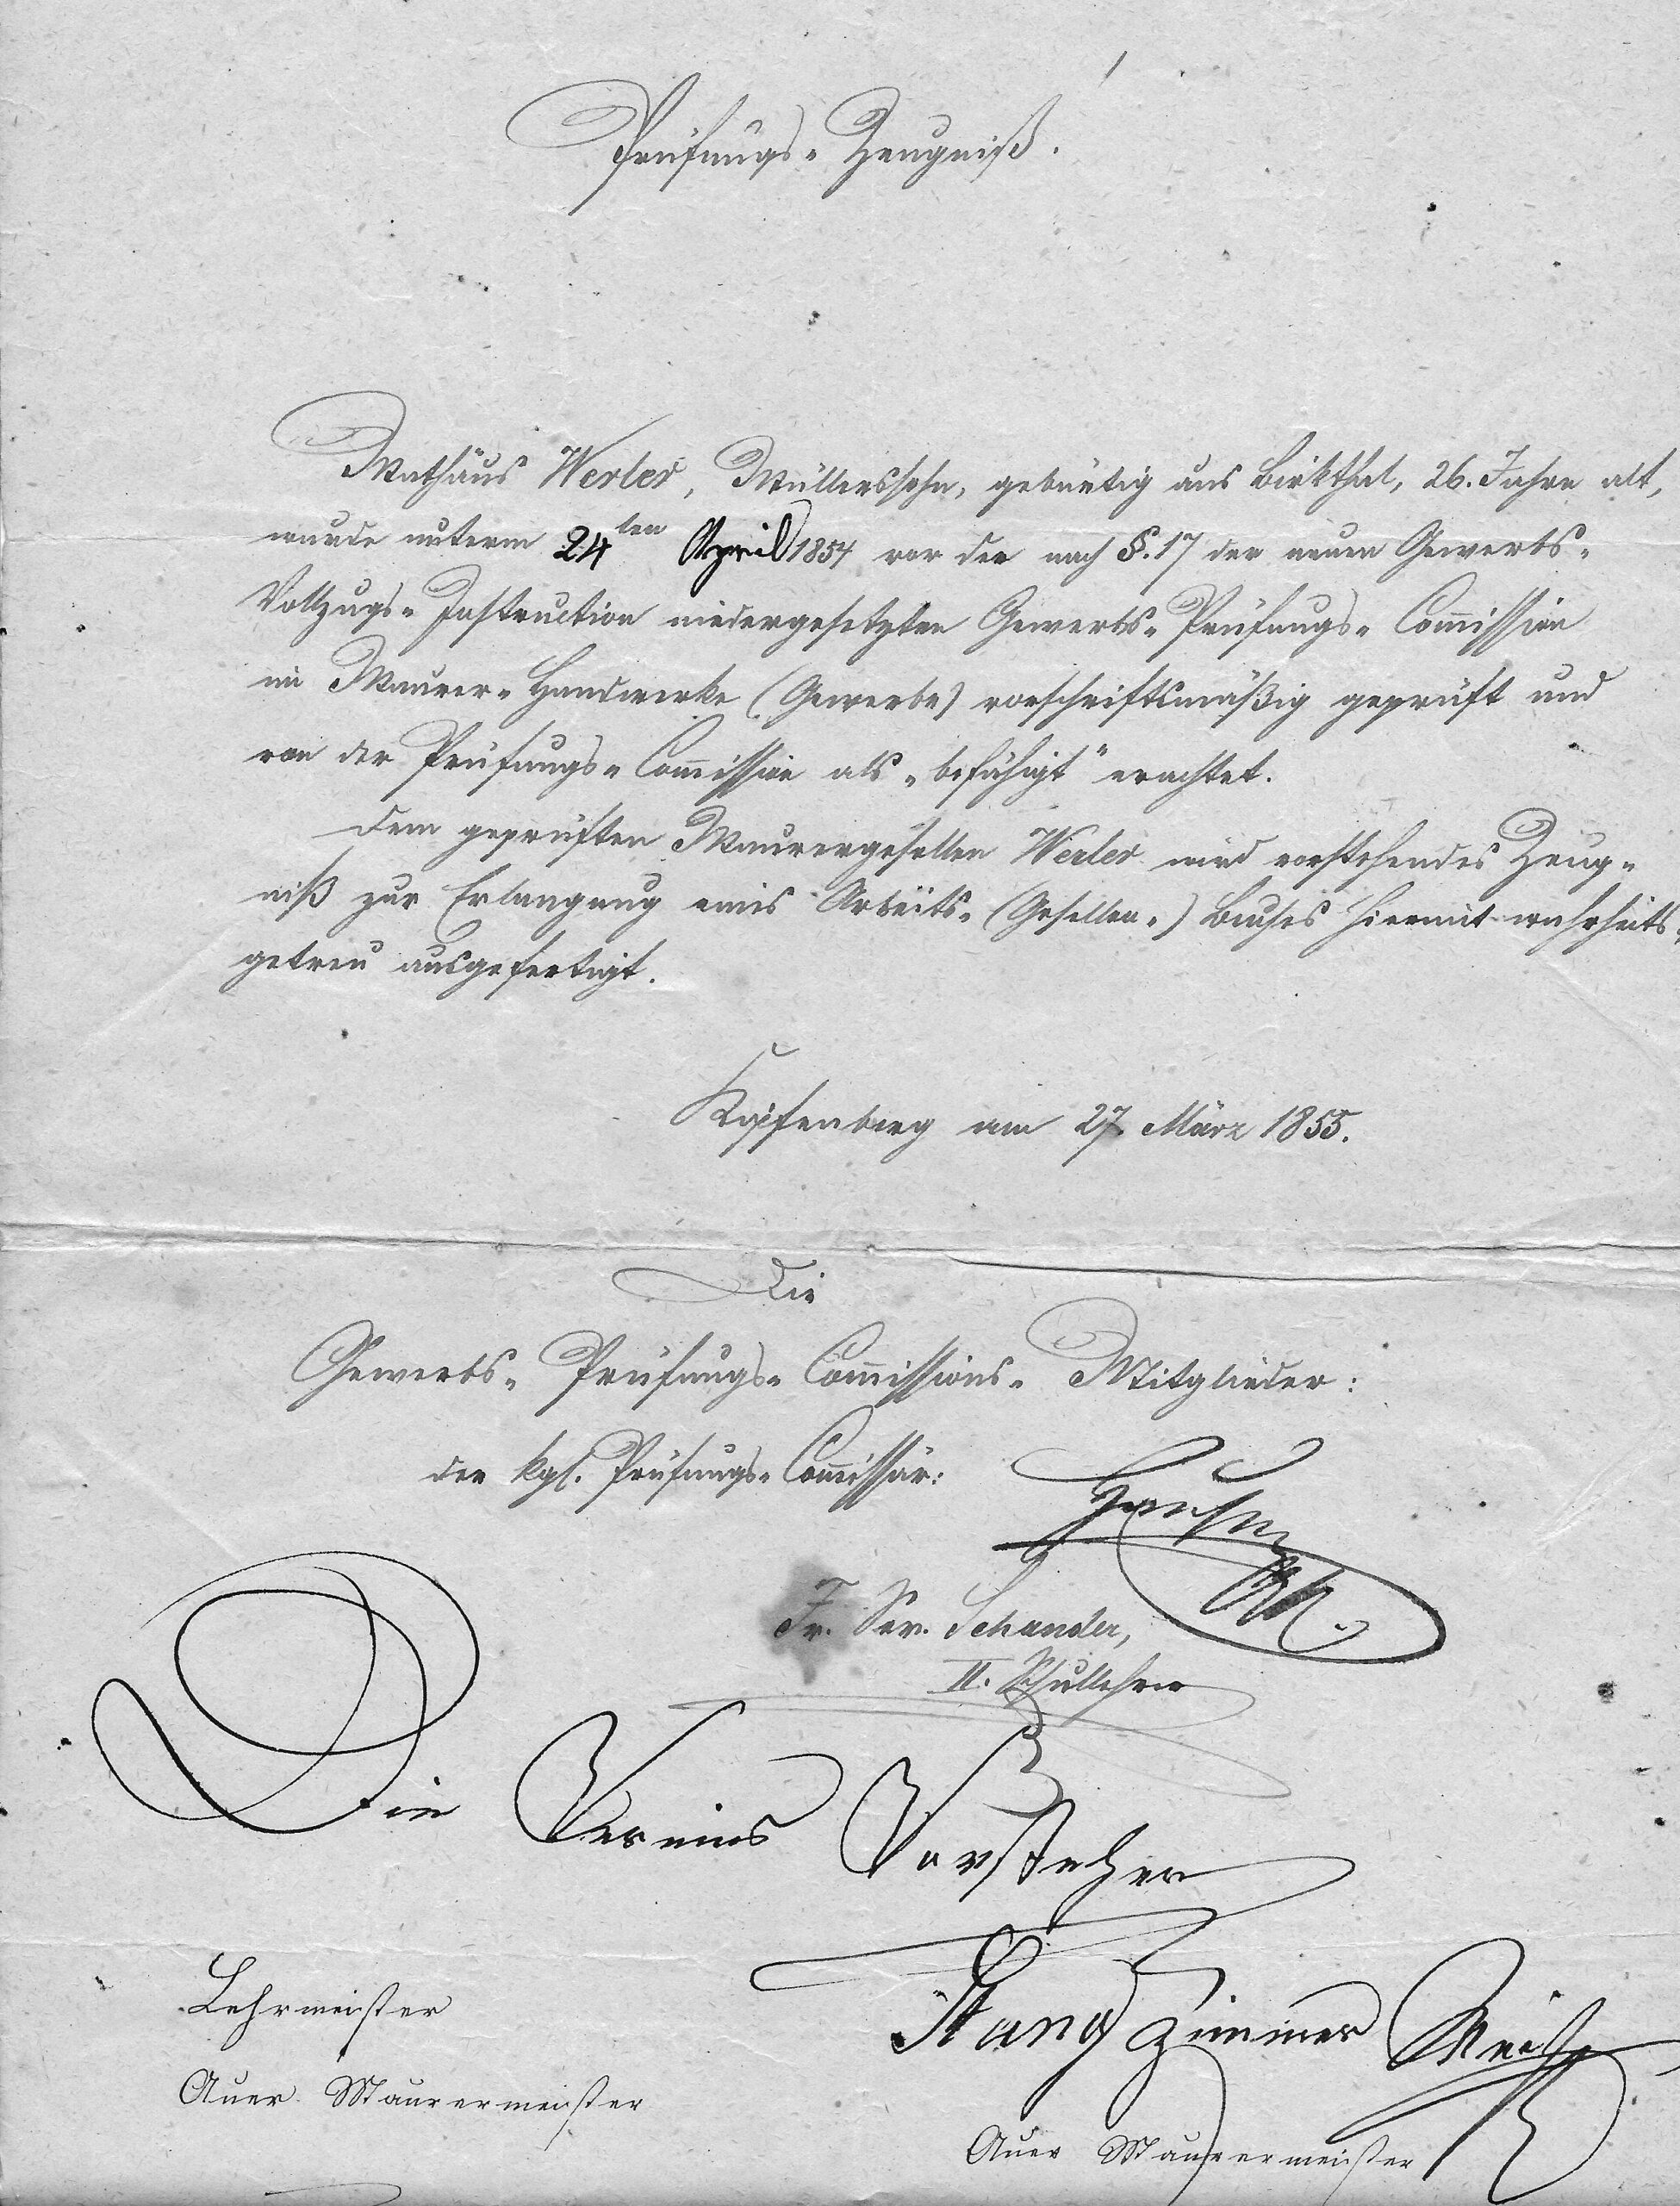 Prüfungs-Zeugniß.
Mathäus Werler, Müllerssohn, gebürtig aus Birkthal, 26. Jahre alt,
wurde unterm 24ten April 1854 vor der nach §. 17 der neuen Gewerbs-
Vollzugs-Instruction niedergesetzten Gewerbs-Prüfungs-Com̅ission
im Maurer-Handwerke (Gewerbe) vorschriftsmäßig geprüft und
von der Prüfungs-Com̅ission als „befähigt" erachtet.
Dem geprüften Maurergesellen Werler wird vorstehendes Zeug-
niß zur Erlangung eines Arbeits-(Gesellen-) Buches hiermit wahrheits-
getreu ausgefertigt.
Kipfenberg am 27. März 1855.
Die
Gewerbs-Prüfungs-Com̅issions-Mitglieder:
der kgl. Prüfungs-Com̅issär:
Fr. Ser. Schander,
II. Schullehrer
Die Vereins Vorsteher
Lehrmeister
Stang Zimmer Meister
Auer Maurermeister
Auer Maurermeister